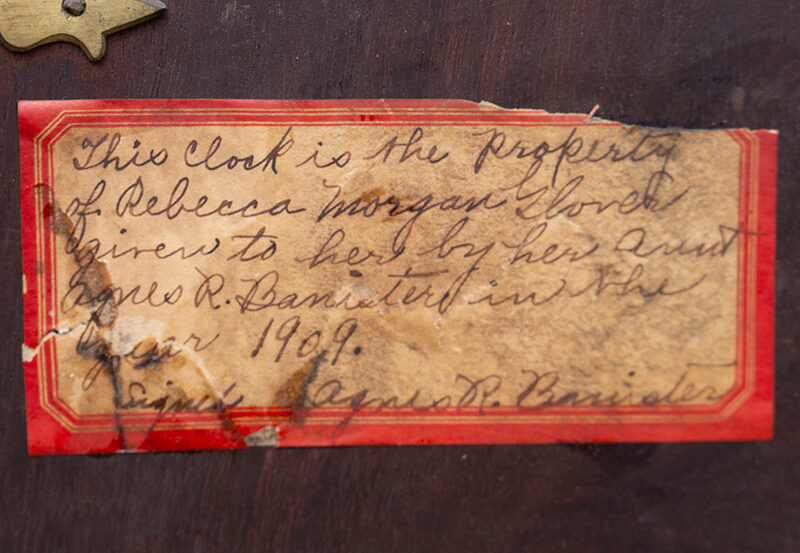 This Clock is the Property
of Rebecca Morgan Glover
given to her by her Aunt
Agnes R. Banister in the
year 1909.
Signed Agnes R. Banister